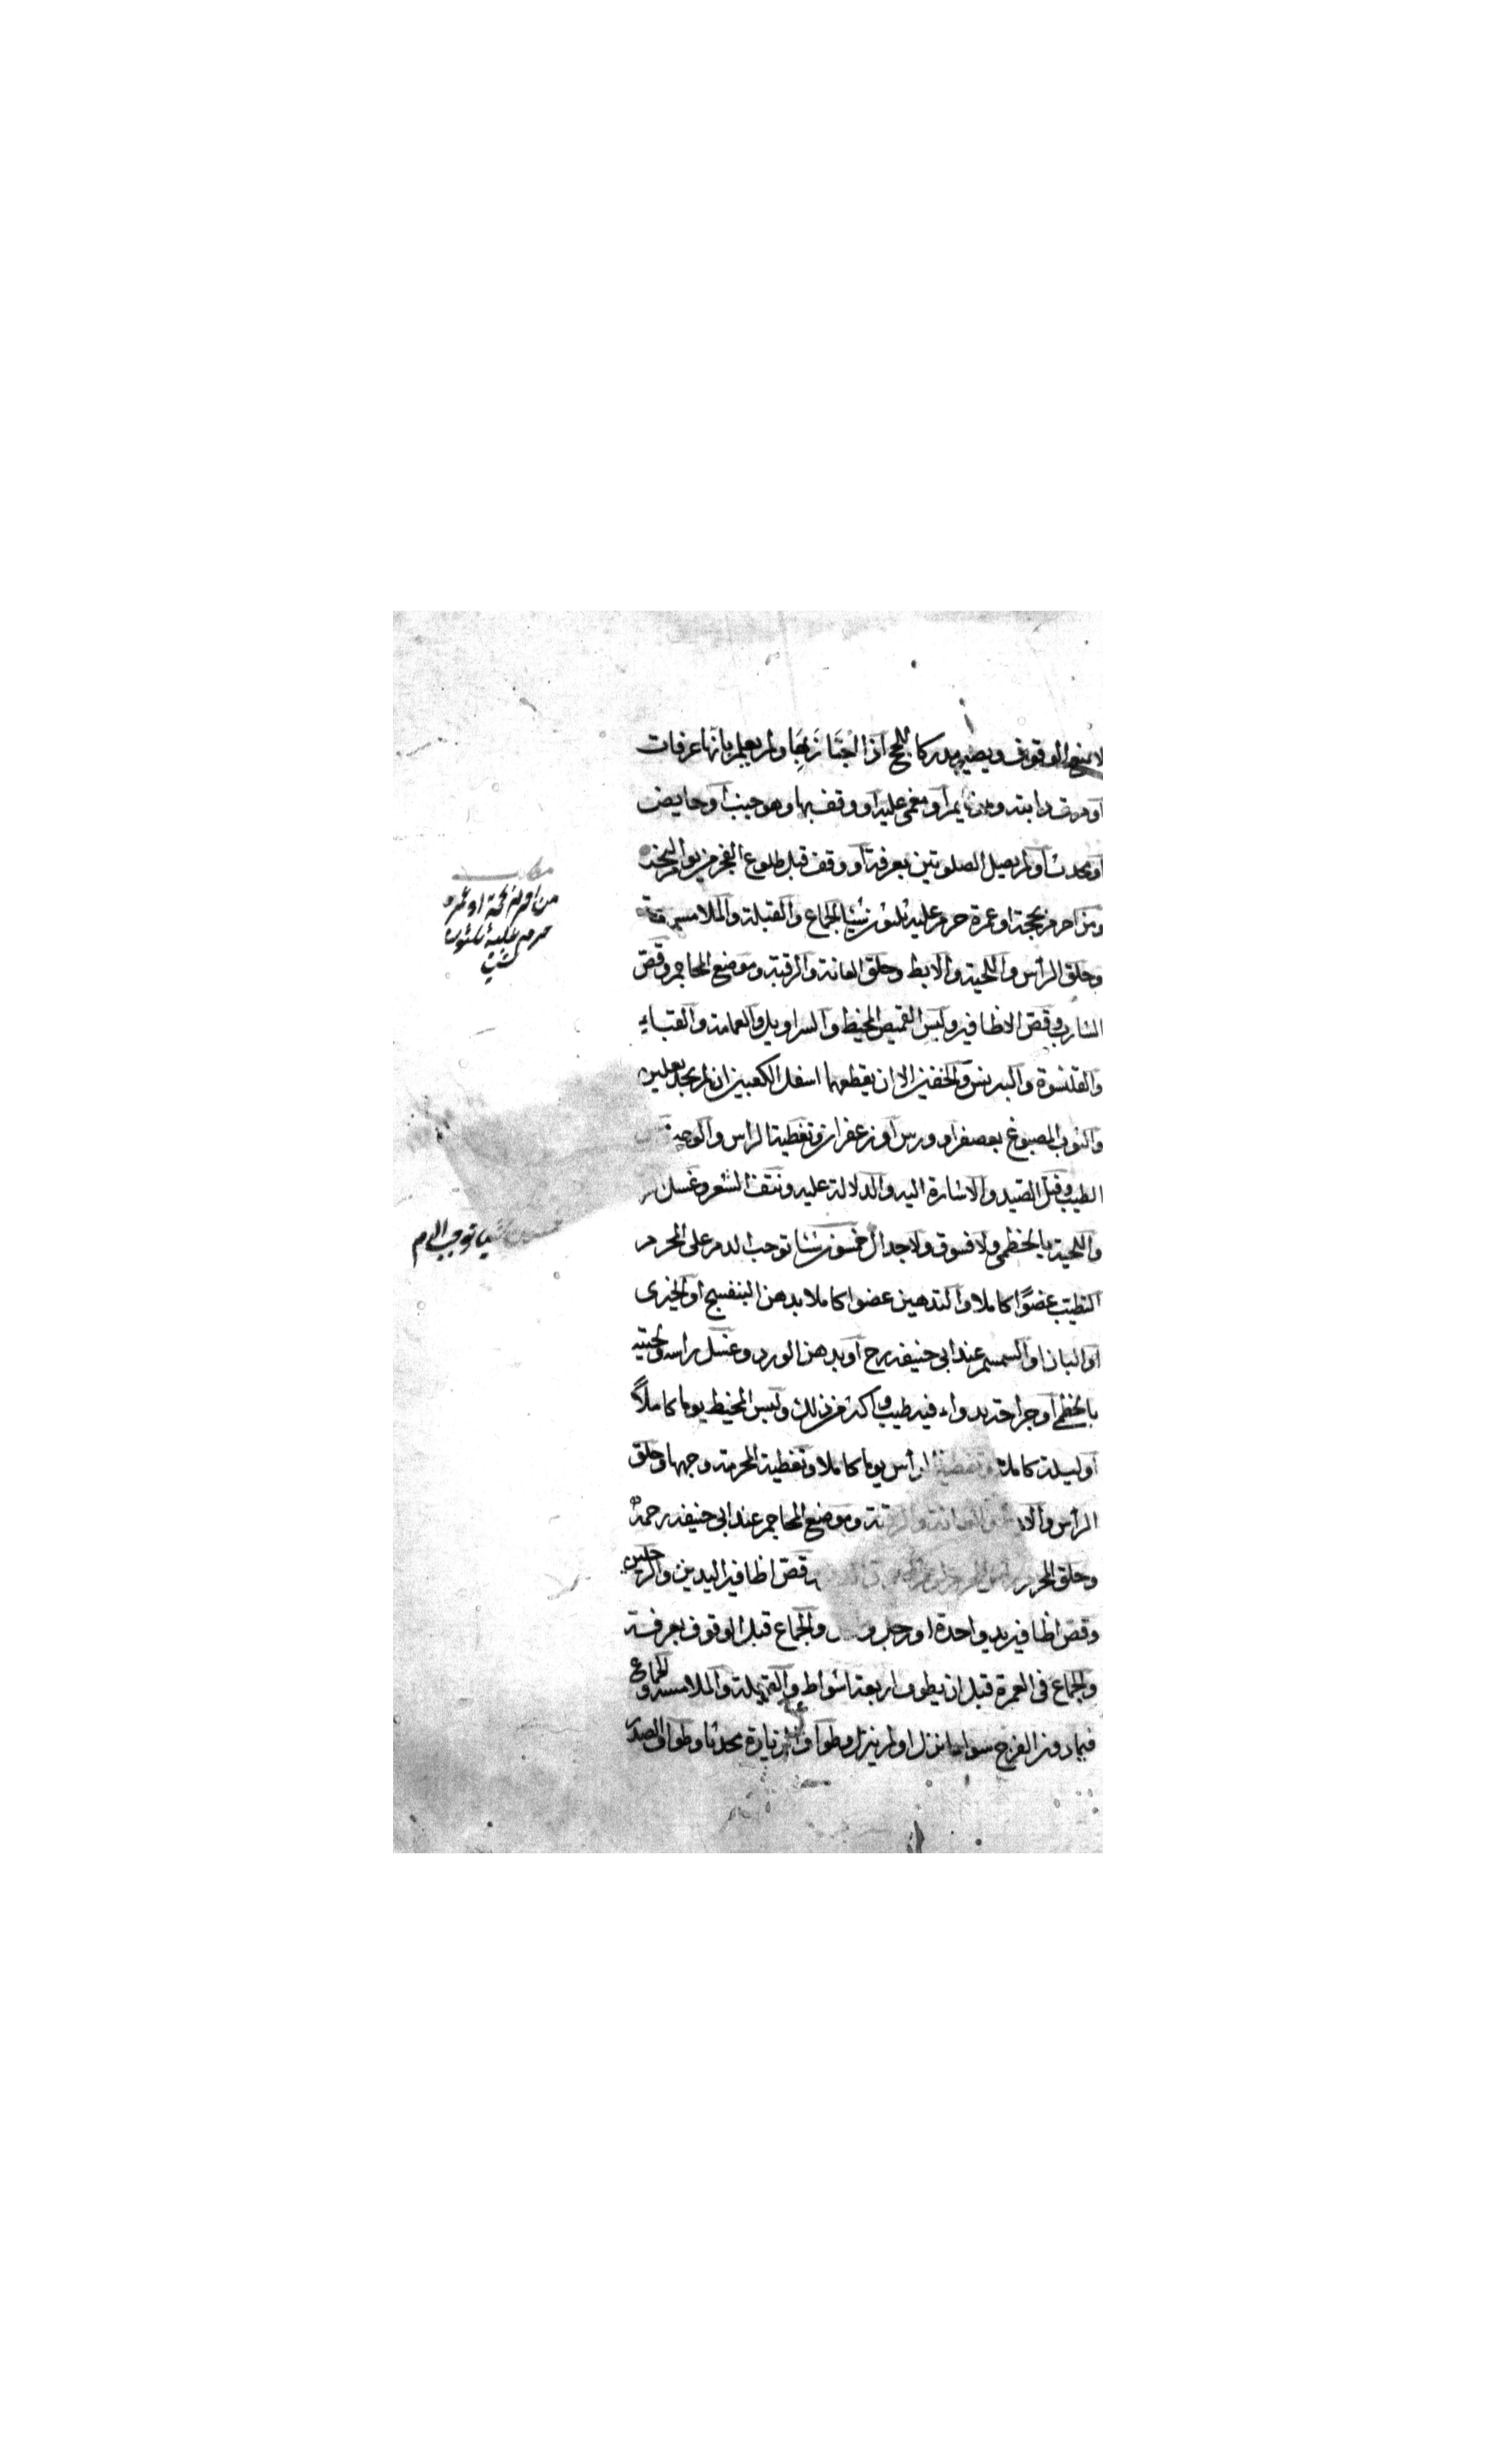 لا يمنع الوقوف ويصير مدركا للحج اذا اجْتَازَ بِهَا ولم يعلم بانها عرفات
او وقف دابته وهو نايم او مغمى عليه او وقف بها وهو جنب او حايض
او محدث او لم يصل الصلوتين بعرفة او وقف قبل طلوع الفجر من يوم النحر
ومن احرم بحجة او عمرة حرم عليه ثلثون شيئا الجماع والقبلة والملامسة
وحلق الرأس واللحية والابط وحلق العانة والرقبة وموضع المحاجم وقصّ
الشارب وقصّ الاظافير ولبس القميص المخيط والسراويل والعمامة والقباء
والقلنسوة والبرنس والخفين الا ان يقطعهما اسفل الكعبين ان لم يجد نعلين
والثوب المصبوغ بعصفر او ورس او زعفران وتغطية الراس والوجه
الطيب وقتل الصيد والاشارة اليه والدلالة عليه ونتف الشعر وغسل
واللحية بالخطمى ولا فسوق ولا جدال خمسون شيئا توجب الدم على المحرم
التطيّب عضوًا كاملا والتدهين عضوا كاملا بدهن البنفسج او الخيرى
او البان او السمسم عند ابى حنيفة رح او بدهن الورد وغسل راسه ولحيته
بالخطمى او جراحة بدواء فيه طيب واكثر من ذلك ولبس المخيط يوما كاملاً
او ليلة كاملة وتغطية الرأس يوما كاملا وتغطية المحرمة وجهها وحلق
الرأس والابط والعانة والرقبة وموضع المحاجم عند ابى حنيفة رحمة
وحلق المحرم رأس وقصّ اظافير اليدين والرجلين
وقصّ اظافير يد واحدة او رجل والجماع قبل الوقوف بعرفة
والجماع فى العمرة قبل ان يطوف اربعة اشواط والقبلة والملامسة والجماع
فيما دون الفرج سواء انزل او لم ينزل وطواف الزيارة محدثا وطواف الصدر
مطلب
من احرم بحجة او عمرة
حرم عليه ثلثون
شيئا
خمسون شيئا توجب الدم